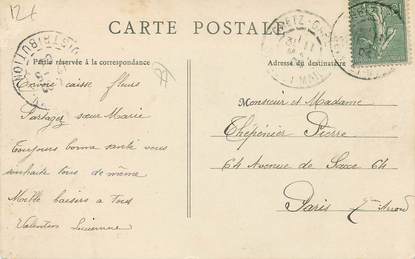 12€
CARTE POSTALE
Partie réservée à la correspondance
Adresse du destinataire
Envoie caisse fleurs
Partagez sœur Marie
Toujours bonne santé vous
souhaite tous de même
Mille baisers à tous
Valentin Lucienne
Monsieur et Madame
Thépénier Pierre
64 Avenue de Saxe 64
Paris
DISTRIBUTION